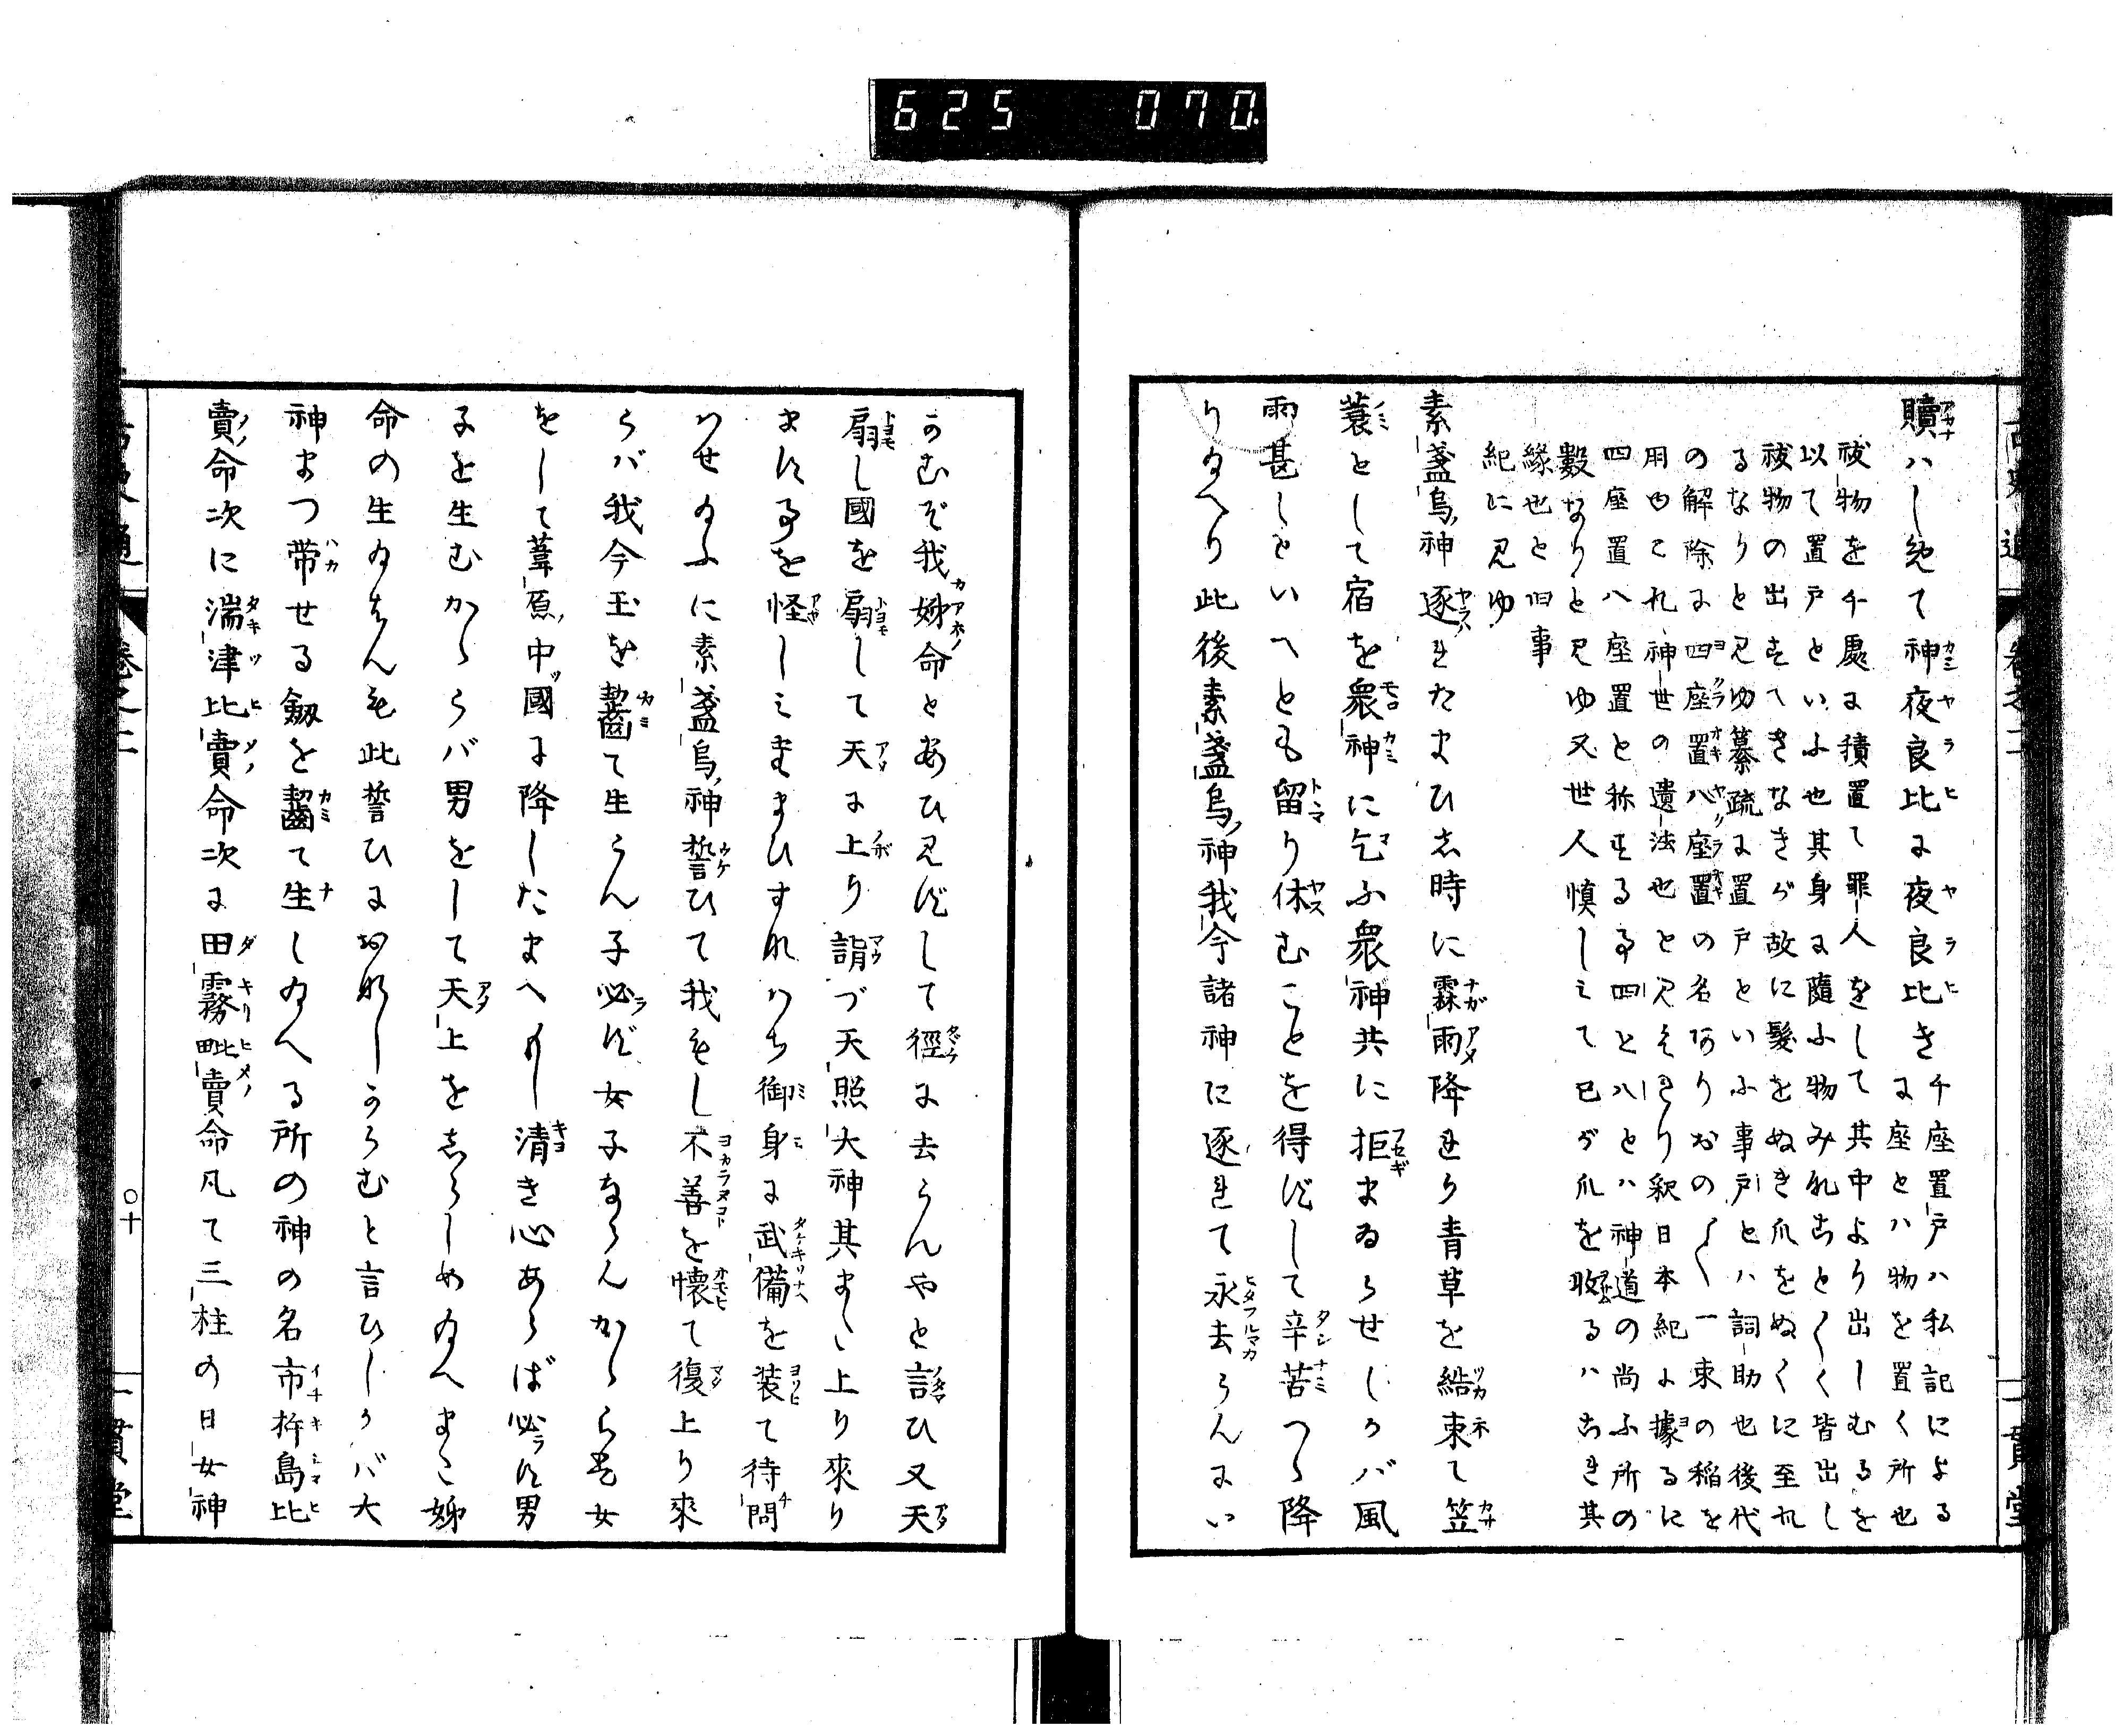 625 070
贖ハし免て神夜良比に夜良比き
千座置戸ハ私記による
に座とハ物を置く所也
祓物を千處に積置て罪人をして其中より出しむるを
以て置戸といふ也其身に隨ふ物みれことく皆出し
祓物の出すへきなきが故に髮をぬき爪をぬくに至れ
るなりと見ゆ纂疏に置戸といふ事戸とハ詞助也後代
の解除に四座置八座置の名ありおの〳〵一束の稲を
用ゆこれ神世の遺法也と見えたり釈日本紀に據るに
四座置八座置と称する事四と八とハ神道の尚ふ所の
數なりと見ゆ又世人慎しミて己が爪を收るハこれ其
緣也と旧事
紀に見ゆ
素盞烏神逐れたまひし時に霖雨降れり青草を結束て笠
蓑として宿を衆神に乞ふ衆神共に拒まゐらせしかバ風
雨甚しといへとも留り休むことを得ずして辛苦つゝ降
りぬへり此後素盞烏神我今諸神に逐れて永去らんにい
かむぞ我姉命とあひ見ずして徑に去らんやと詔ひ又天
扇し國を扇して天に上り詣づ天照大神其まゝ上り來り
ます事を怪しミたまひすなわち御身に武備を装て待問
わせ給ふに素盞烏神誓ひて我もし不善を懷て復上り來
らバ我今玉を齧て生らん子必ず女子ならんかゝらば女
をして葦原中國に降したまへもし清き心あらば必ず男
子を生むかゝらバ男をして天上をしらしめ給へまた姉
命の生給はんも此誓ひにおなしからむと言ひしかバ大
神まつ帶せる劔を齧て生し給へる所の神の名市杵島比
賣命次に湍津比賣命次に田霧毗賣命凡て三柱の日女神
卷之二
〇十
一貫堂